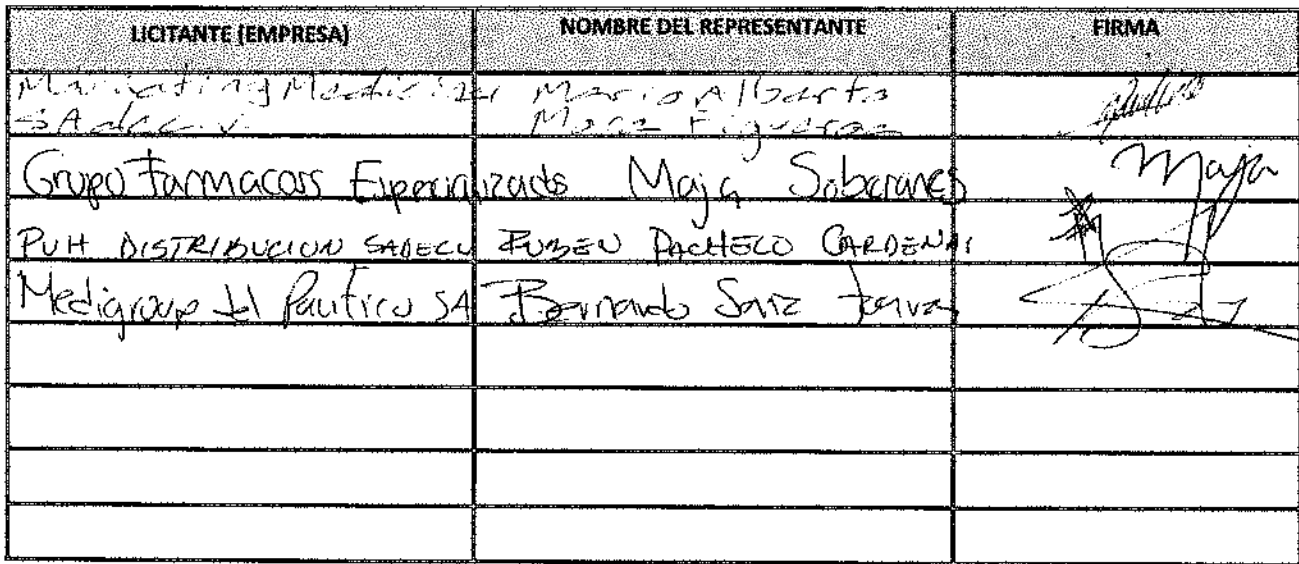 LICITANTE (EMPRESA) NOMBRE DEL REPRESENTANTE FIRMA
Marketing Medicinal Mario Alberto
SA de C.V. Figueroa
Grupo Farmacos Especializado Maja Soberanes Maja
PUH DISTRIBUCION SADECV RUBEN PACHECO CARDENAS
Medigroup del Pacifico SA Bernardo Sanz